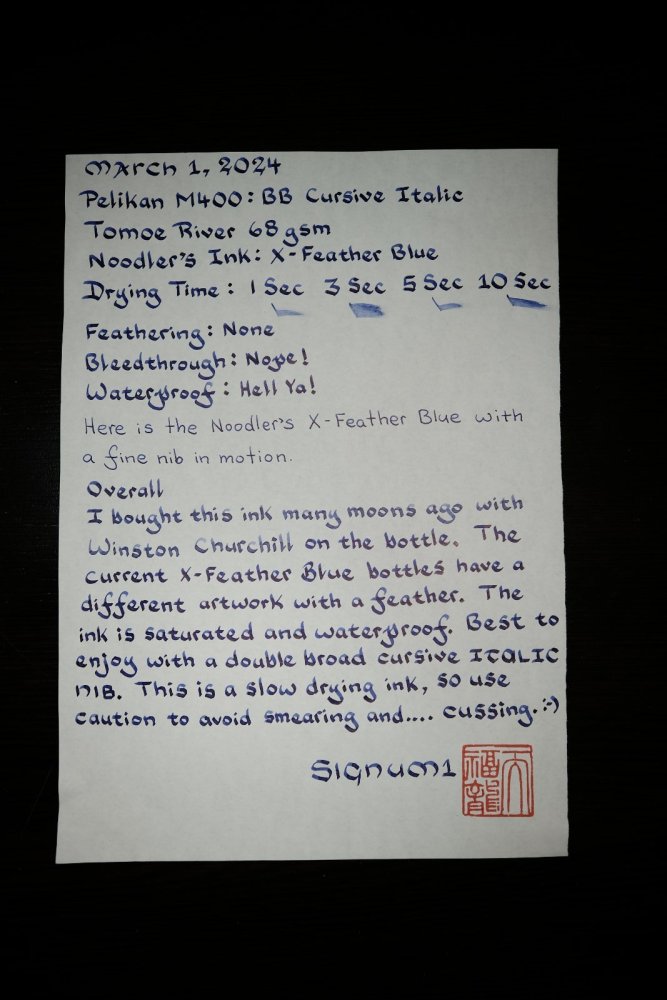 March 1, 2024
Pelikan M400: BB Cursive Italic
Tomoe River 68 gsm
Noodler's Ink: X-Feather Blue
Drying Time: 1 Sec 3 Sec 5 Sec 10 Sec
Feathering: None
Bleedthrough: Nope!
Waterproof: Hell Ya!
Here is the Noodler's X-Feather Blue with
a fine nib in motion.
Overall
I bought this ink many moons ago with
Winston Churchill on the bottle. The
current X-Feather Blue bottles have a
different artwork with a feather. The
ink is saturated and waterproof. Best to
enjoy with a double broad cursive ITALIC
NIB. This is a slow drying ink, so use
caution to avoid smearing and.... cussing. :-)
Signum1